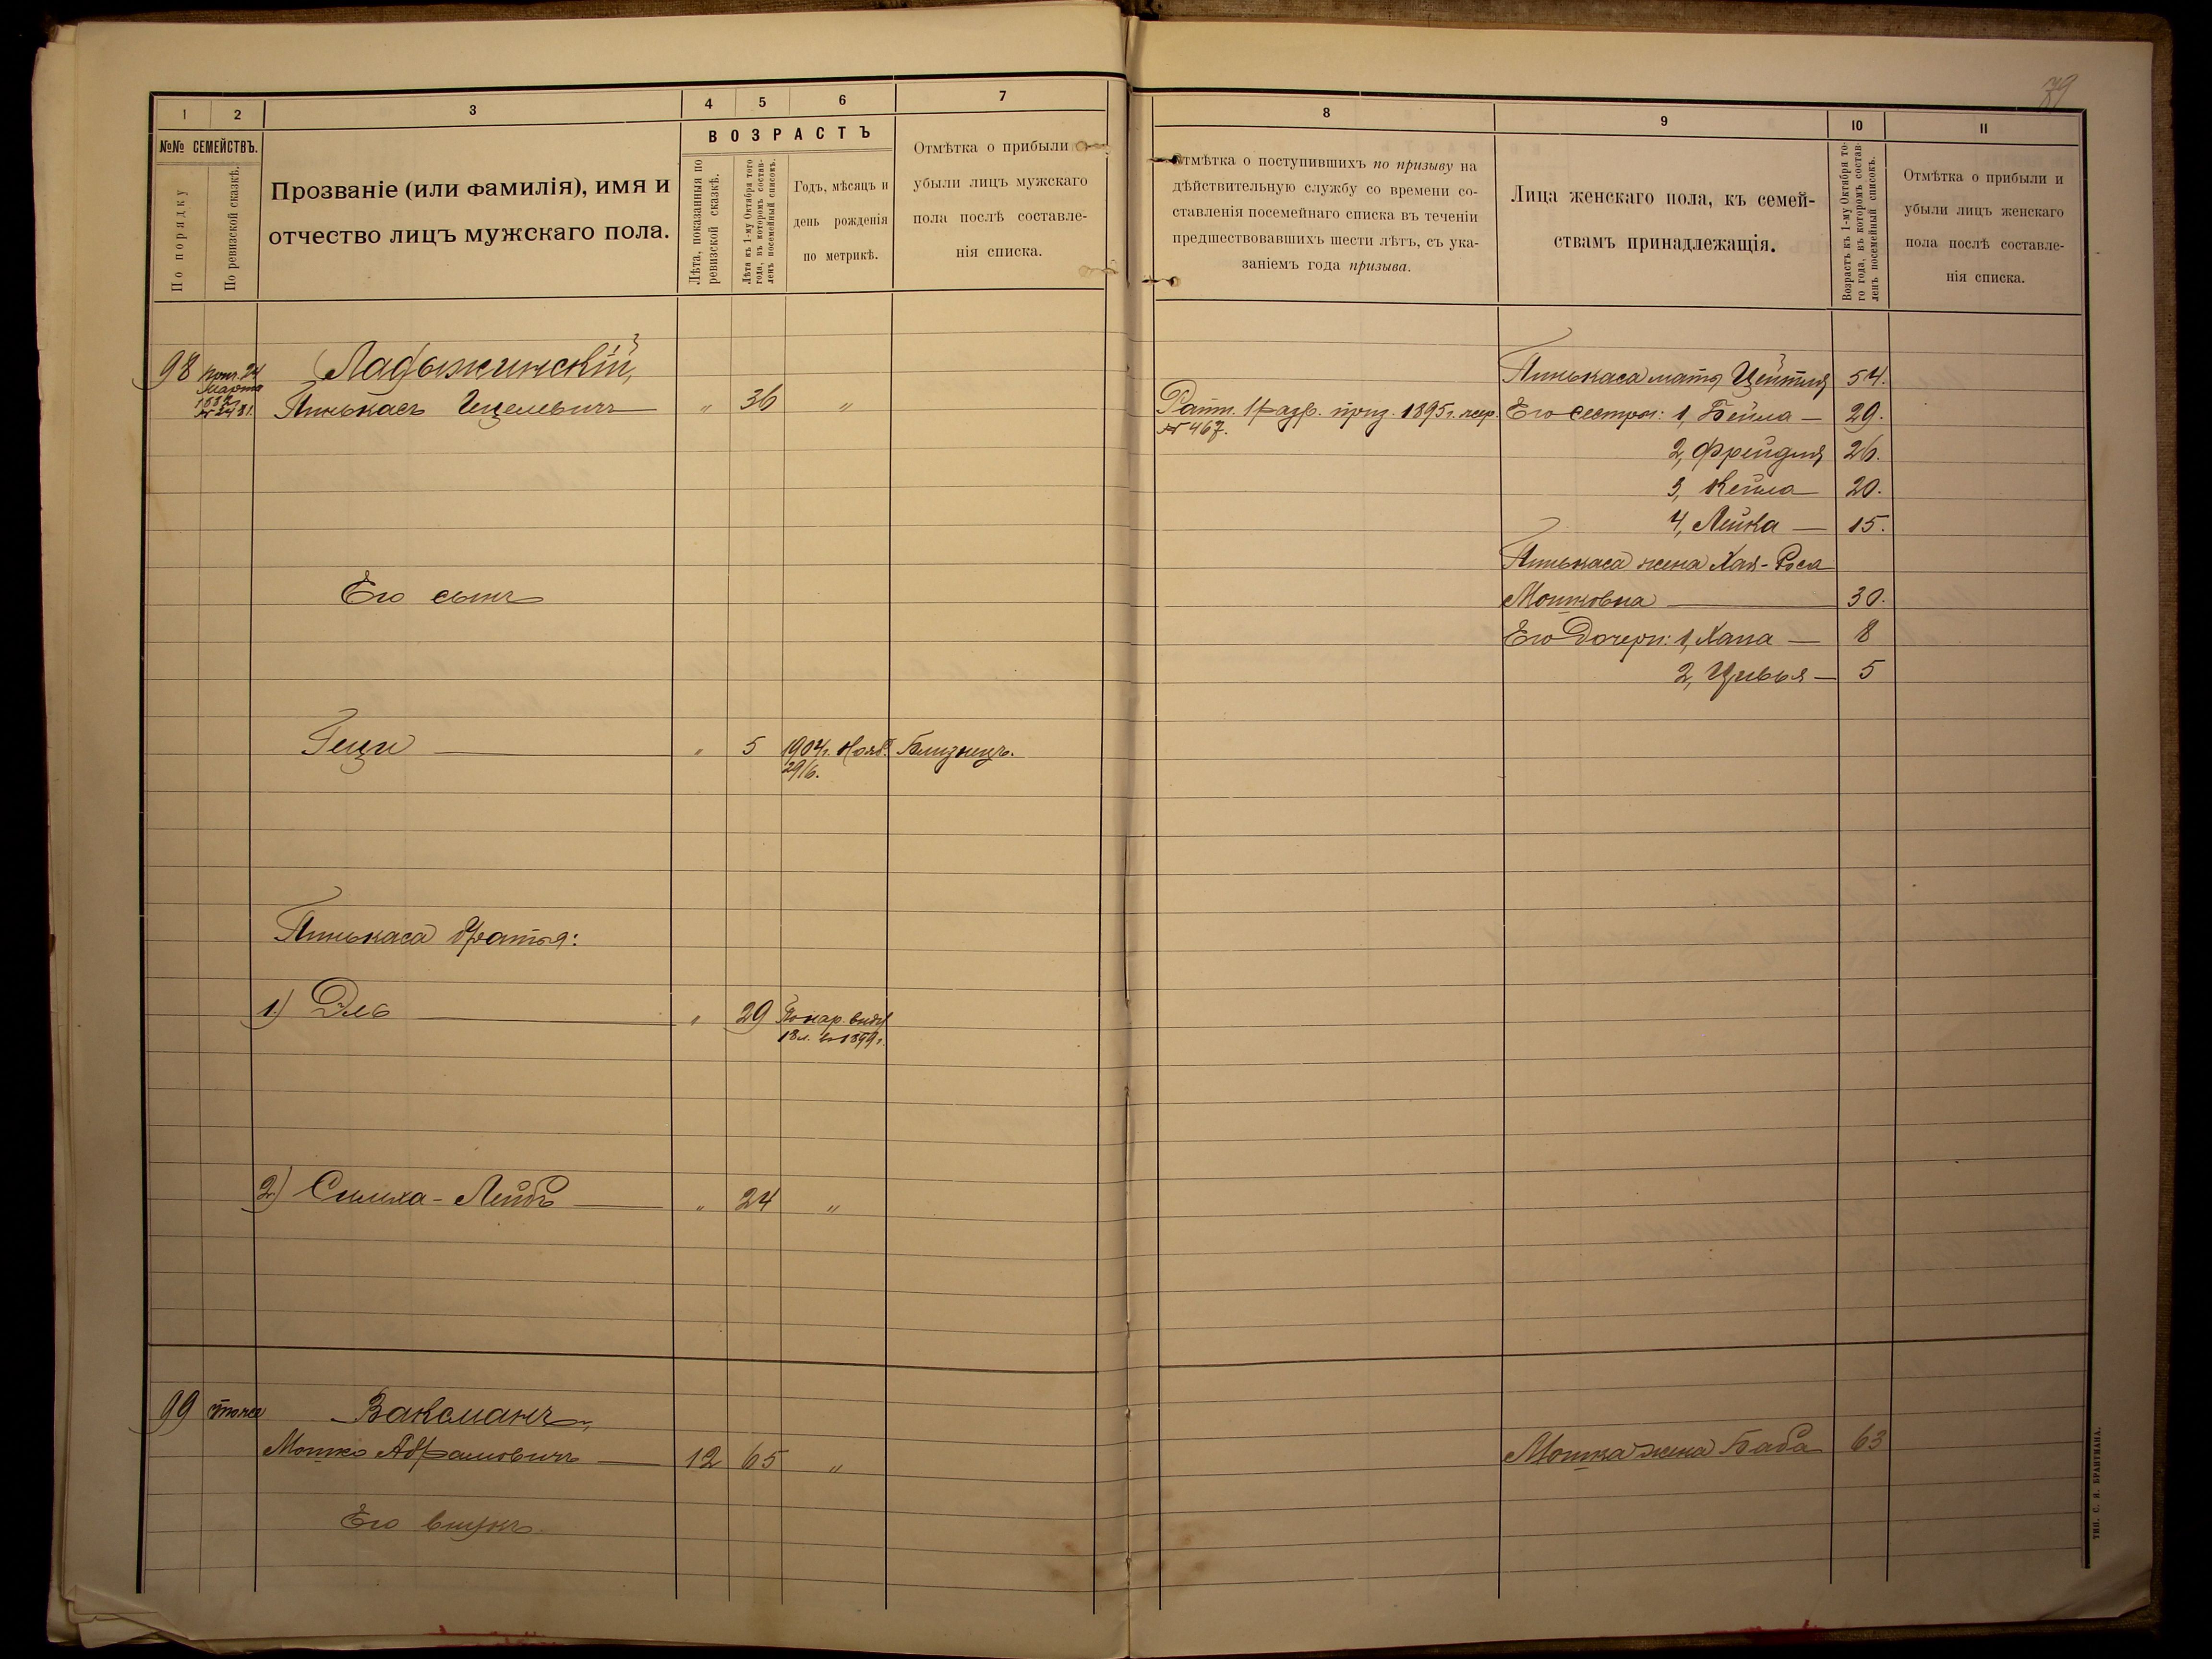 1 2 3 4 5 6 7
№№ СЕМЕЙСТВЪ.
По порядку
По ревизской сказкѣ.
Прозваніе (или фамилія), имя и
отчество лицъ мужскаго пола.
ВОЗРАСТЪ
Лѣта, показанныя по
ревизской сказкѣ.
Лѣта къ 1-му Октября того
года, въ которомъ состав-
ленъ посемейный списокъ.
Годъ, мѣсяцъ и
день рожденія
по метрикѣ.
Отмѣтка о прибыли и
убыли лицъ мужскаго
пола послѣ составле-
нія списка.
98
24
Марта
Ладыжинскій,
Пинькасъ Ицелевичъ „ 36 „
Его сынъ
Геци — „ 5 1904г. Нояб. Близнецъ.
29/6.
Пинькаса братья:
1.) Эль — „ 29 По нар. виду
18 л. въ 1899 г.
2.) Симха-Лейбъ — „ 24 „
99 тоже Ваксманъ,
Мошко Абрамовичъ — 12 65 „
Его внукъ
79
8 9 10 11
Отмѣтка о поступившихъ по призыву на
дѣйствительную службу со времени со-
ставленія посемейнаго списка въ теченіи
предшествовавшихъ шести лѣтъ, съ ука-
заніемъ года призыва.
Лица женскаго пола, къ семей-
ствамъ принадлежащія.
Возрастъ къ 1-му Октября то-
го года, въ которомъ состав-
ленъ посемейный списокъ.
Отмѣтка о прибыли и
убыли лицъ женскаго
пола послѣ составле-
нія списка.
Пинькаса мать Цейтля 54.
Ратн. 1 разр. приз. 1895 г. жер. Его сестры: 1, Бейла — 29.
№ 467.
2, Фрейдля 26.
3, Кейла — 20.
4, Лейка — 15.
Пинькаса жена Хая-Роса
Мошковна — 30.
Его дочери: 1, Хана — 8
2, Цивья — 5
Мошка жена Баба 63
ТИП. С. И. БРАНТМАНА.